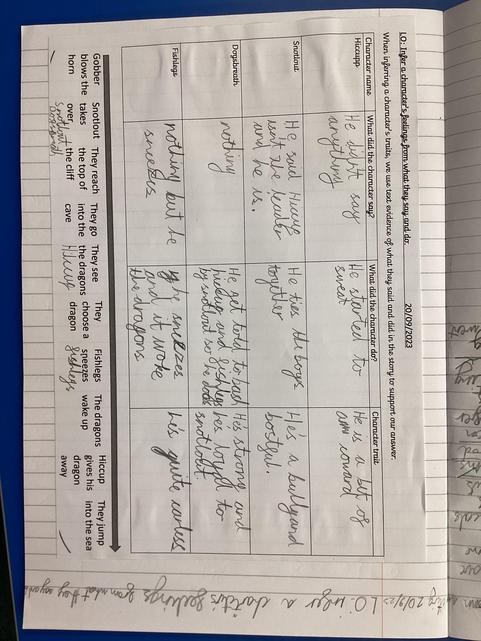 LO: Infer a character's feelings from what they say and do.
20/09/2023
When inferring a character's traits, we use text evidence of what they said and did in the story to support our answer.
Character name
What did the character say?
What did the character do?
Character trait
Hiccupp.
He didnt say
anything
He started to
sweat
He is a bit of
coward
Snotlout
He said Hiccup
isnt the leader
and he is.
He ties the boys
together
He's a bully and
bostful.
Dogsbreath.
nothing
He get told to bash
hiccup and fishlegs
by snotlout so he does
He's strong and
he's loyal to
snotlout
Fishlegs
nothing but he
sneezes
he sneezes
and it woke
the dragons
he's quite careless
Gobber
blows the
horn
Snotlout
takes
over
They reach
the top of
the cliff
They go
into the
cave
They see
the dragons
They
choose a
dragon
Fishlegs
sneezes
The dragons
wake up
Hiccup
gives his
dragon
away
They jump
into the sea
snotlout
Hiccup
fishlegs
20/9/23 LO: infer a feelings from what they say and